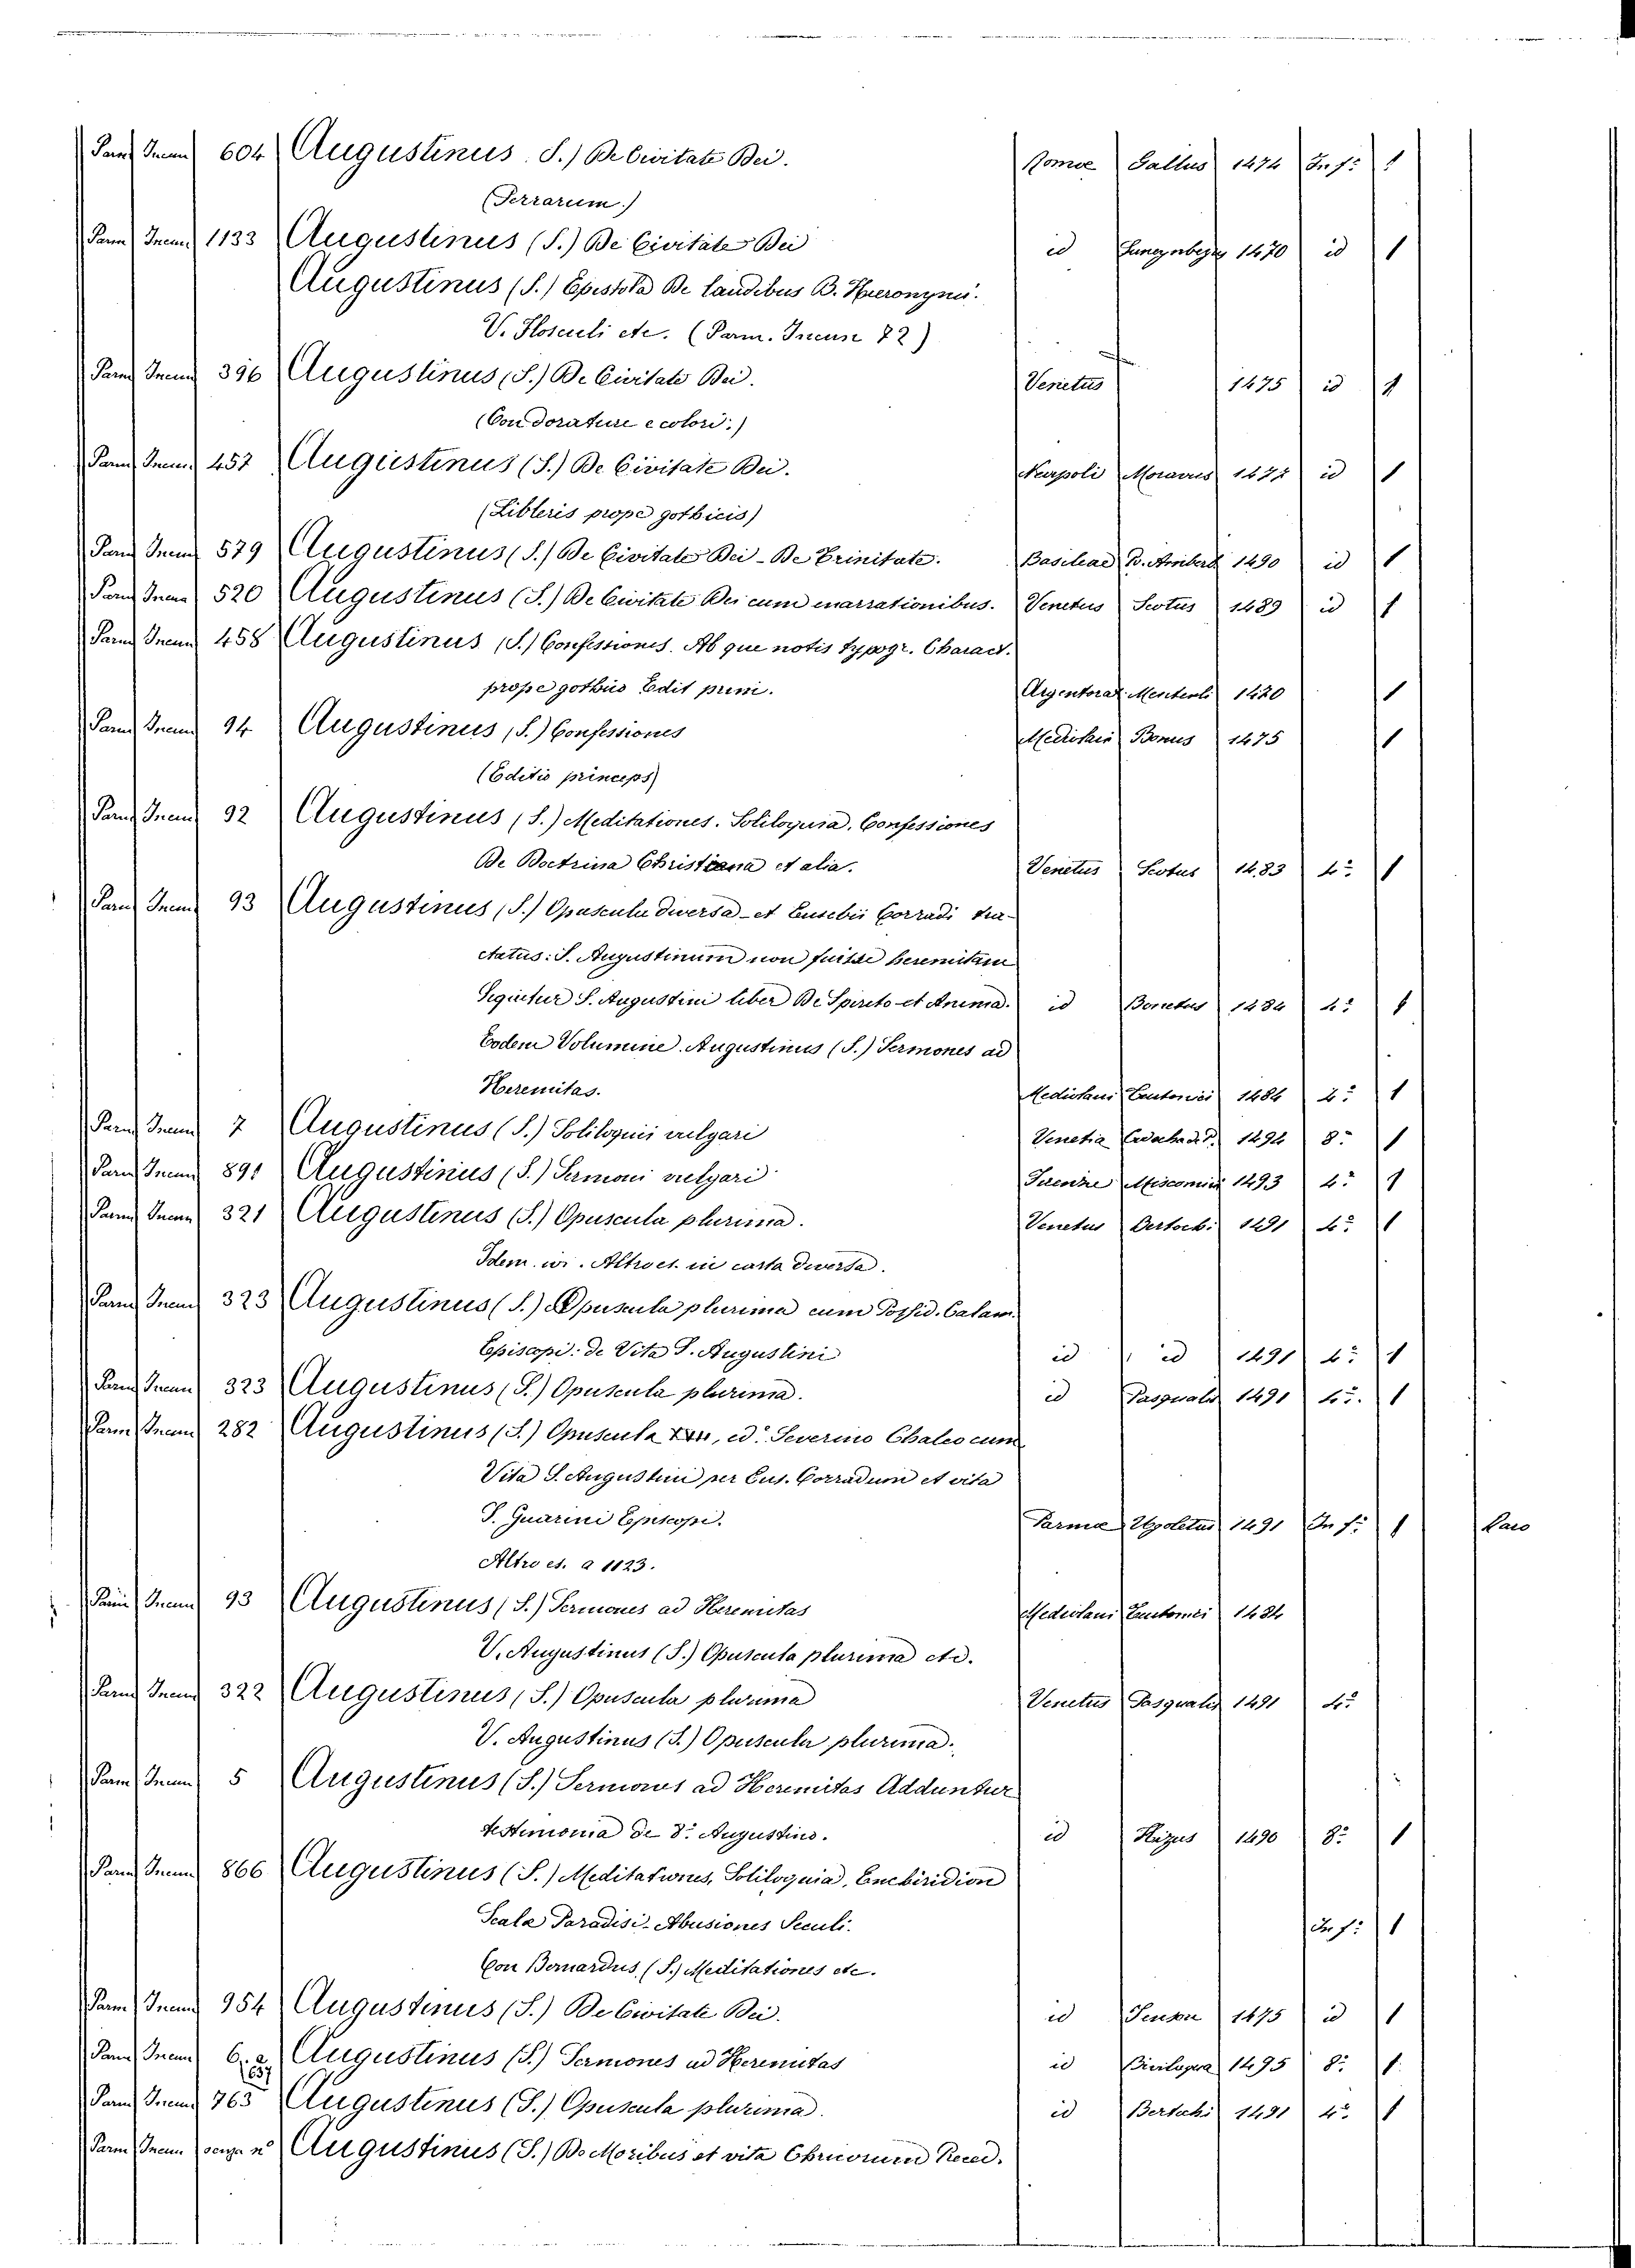 Parm Incun 604 Augustinus S.) De Civitate Dei. Romae Gallus 1474 In f: 1
(Terrarum.)
Parm Incun 1133 Augustinus (S.) De Civitate Dei id 1470 id 1
Augustinus (S.) Epistola De laudibus B. Hieronymi.
V. Flosculi etc. (Parm. Incun 72)
Parm Incun 396 Augustinus, (S.) De Civitate Dei. Venetus 1475 id 1
(Con dorature e colori.)
Parm Incun 457 Augustinus (S.) De Civitate Dei. Neapoli Moravus 1477 id 1
(Litteris prope gothicis)
Parm Incun 579 Augustinus (S.) De Civitate Dei - De Trinitate. Basileae 1490 id 1
Parm Incun 520 Augustinus (S.) De Civitate Dei cum enarrationibus. Venetus Scotus 1489 id 1
Parm Incun 458 Augustinus (S.) Confessiones. Ab que notis typogr. Charact.
prope gothis Edit prim. Argentorat. Mentech 1470 1
Parm Incun 94 Augustinus, (S.) Confessiones Mediolani Bonus 1475 1
(Editio princeps)
Parm Incun 92 Augustinus (S.) Meditationes. Soliloquia, Confessiones
De Doctrina Christiana et alia. Venetus Scotus 1483 4º 1
Parm Incun 93 Augustinus, (S.) Opuscula diversa - et Eusebii Corradi tra-
ctatus: S. Augustinum non fuisse heremitam
Sequitur S. Augustini liber De Spirito et Anima. id Bonetus 1484 4º 1
Eodem Volumine. Augustinus (S.) Sermones ad
Heremitas. Mediolani 1484 4º 1
Parm Incun 7 Augustinus (S.) Soliloquii vulgari Venetia 1492 8º 1
Parm Incun 891 Augustinus (S.) Sermoni vulgari Firenze Miscomini 1493 4º 1
Parm Incun 321 Augustinus (S.) Opuscula plurima. Venetus Bertoch: 1491 4º 1
Idem. ivi. Altro es. in carta diversa.
Parm Incun 323 Augustinus (S.) Opuscula plurima cum Possid. Calam.
Episcopi: de Vita S. Augustini id id 1491 4º 1
Parm Incun 323 Augustinus (S.) Opuscula plurima. id Pasqualis 1491 4º. 1
Parm Incun 282 Augustinus (S.) Opuscula ed. Severino Chalco cum
Vita S. Augustini per Eus. Corradum et vita
S. Guarini Episcopi. Parmae Ugoletus 1491 In f: 1 Raro
Altro es. a 1123.
Parm Incun 93 Augustinus (S.) Sermones ad Heremitas Mediolani 1484
V. Augustinus (S.) Opuscula plurima etc.
Parm Incun 322 Augustinus (S.) Opuscula plurima Venetus Pasqualis 1491 4º
V. Augustinus (S.) Opuscula plurima.
Parm Incun 5 Augustinus (S.) Sermones ad Heremitas Adduntur
testimonia de S. Augustino. id 1490 8º 1
Parm Incun 866 Augustinus (S.) Meditationes, Soliloquia, Enchiridion
Scala Paradisi - Abusiones Seculi. In f: 1
Con Bernardus, (S.) Meditationes etc.
Parm Incun 954 Augustinus (S.) De Civitate Dei. id Jenson 1475 id 1
Parm Incun 6. a Augustinus (S.) Sermones ad Heremitas id 1495 8º 1
Parm Incun 763 Augustinus (S.) Opuscula plurima. id Bertochi 1491 4º 1
Parm Incun senza nº Augustinus (S.) De Moribus et vita